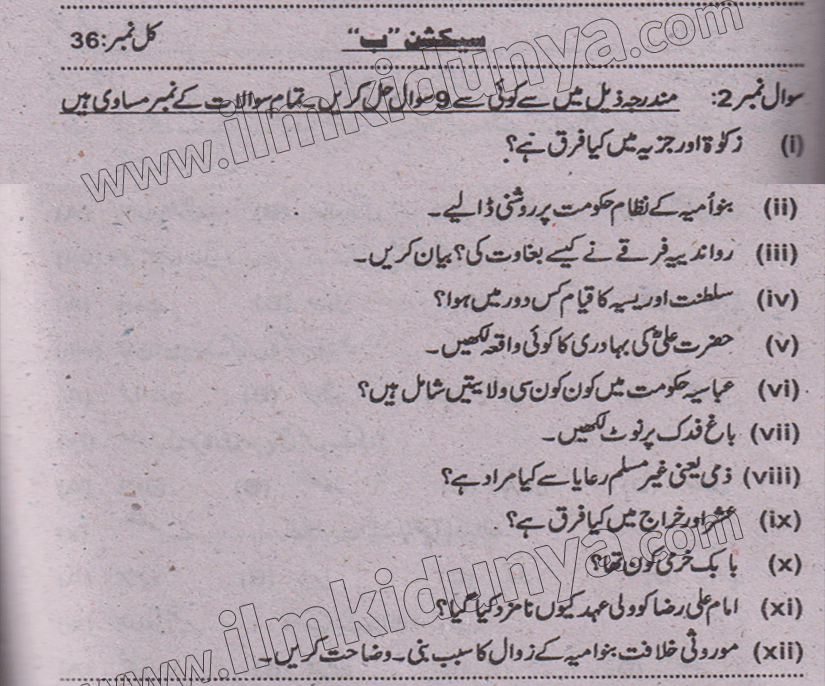 سیکشن "ب" کل نمبر: 36
سوال نمبر 2: مندرجہ ذیل میں سے کوئی سے 9 سوال حل کریں۔ تمام سوالات کے نمبر مساوی ہیں
(i) زکوٰۃ اور جزیہ میں کیا فرق ہے؟
(ii) بنو اُمیہ کے نظام حکومت پر روشنی ڈالیے۔
(iii) رواندیہ فرقے نے کیسے بغاوت کی؟ بیان کریں۔
(iv) سلطنت ادریسیہ کا قیام کس دور میں ہوا؟
(v) حضرت علیؓ کی بہادری کا کوئی واقعہ لکھیں۔
(vi) عباسیہ حکومت میں کون کون سی ولایتیں شامل ہیں؟
(vii) باغ فدک پر نوٹ لکھیں۔
(viii) ذمی یعنی غیر مسلم رعایا سے کیا مراد ہے؟
(ix) عشر اور خراج میں کیا فرق ہے؟
(x) بابک خرمی کون تھا؟
(xi) امام علی رضا کو ولی عہد کیوں نامزد کیا گیا؟
(xii) موروثی خلافت بنو امیہ کے زوال کا سبب بنی۔ وضاحت کریں۔
www.ilmkidunya.com
www.ilmkidunya.com